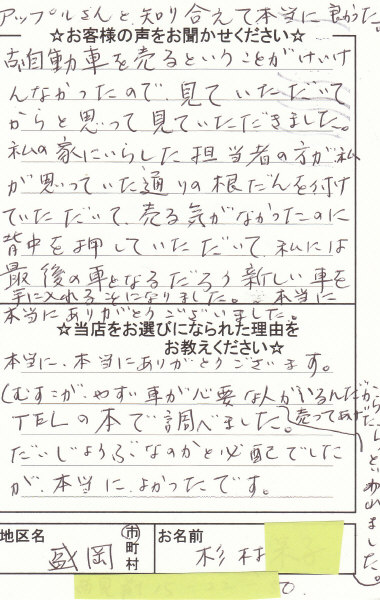 アップルさんと知り合えて本当に良かった。
☆お客様の声をお聞かせください☆
自動車を売るということがけいけ
んなかったので、見ていただいて
からと思って見ていただきました。
私の家にいらした担当者の方が私
が思っていた通りの根だんを付け
ていただいて、売る気がなかったのに
背中を押していただいて、私には
最後の車となるだろう新しい車を
手に入れるそになりました。本当に
本当にありがとうございました。
☆当店をお選びになられた理由を
お教えください☆
本当に、本当にありがとうございます。
(むすこが、やすい車が必要な人がいるんだから
売ってあげたらといわれました。)
TELの本で調べました。
だいじょうぶなのかと心配でした
が、本当に、よかったです。
地区名
盛岡
市
町
村
お名前
杉村